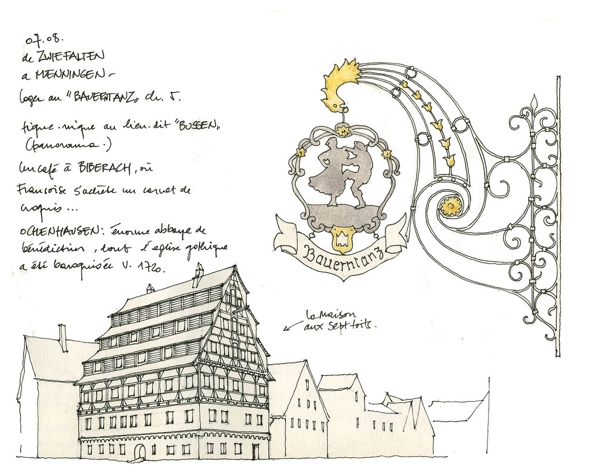 07.08.
de ZWIEFALTEN
a MEMNINGEN -
loger au "BAUERNTANZ" ch. 5.
pique-nique au lieu-dit "BUSSEN"
(panorama.)
Un café à BIBERACH, où
Françoise s'achète un carnet de
croquis...
OCHENHAUSEN: énorme abbaye de
bénédictins, dont l'église gothique
a été baroquisée v. 1720.
Bauerntanz
La maison
aux sept toits.